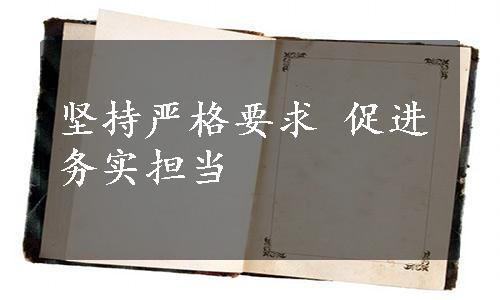 坚持严格要求 促进
务实担当